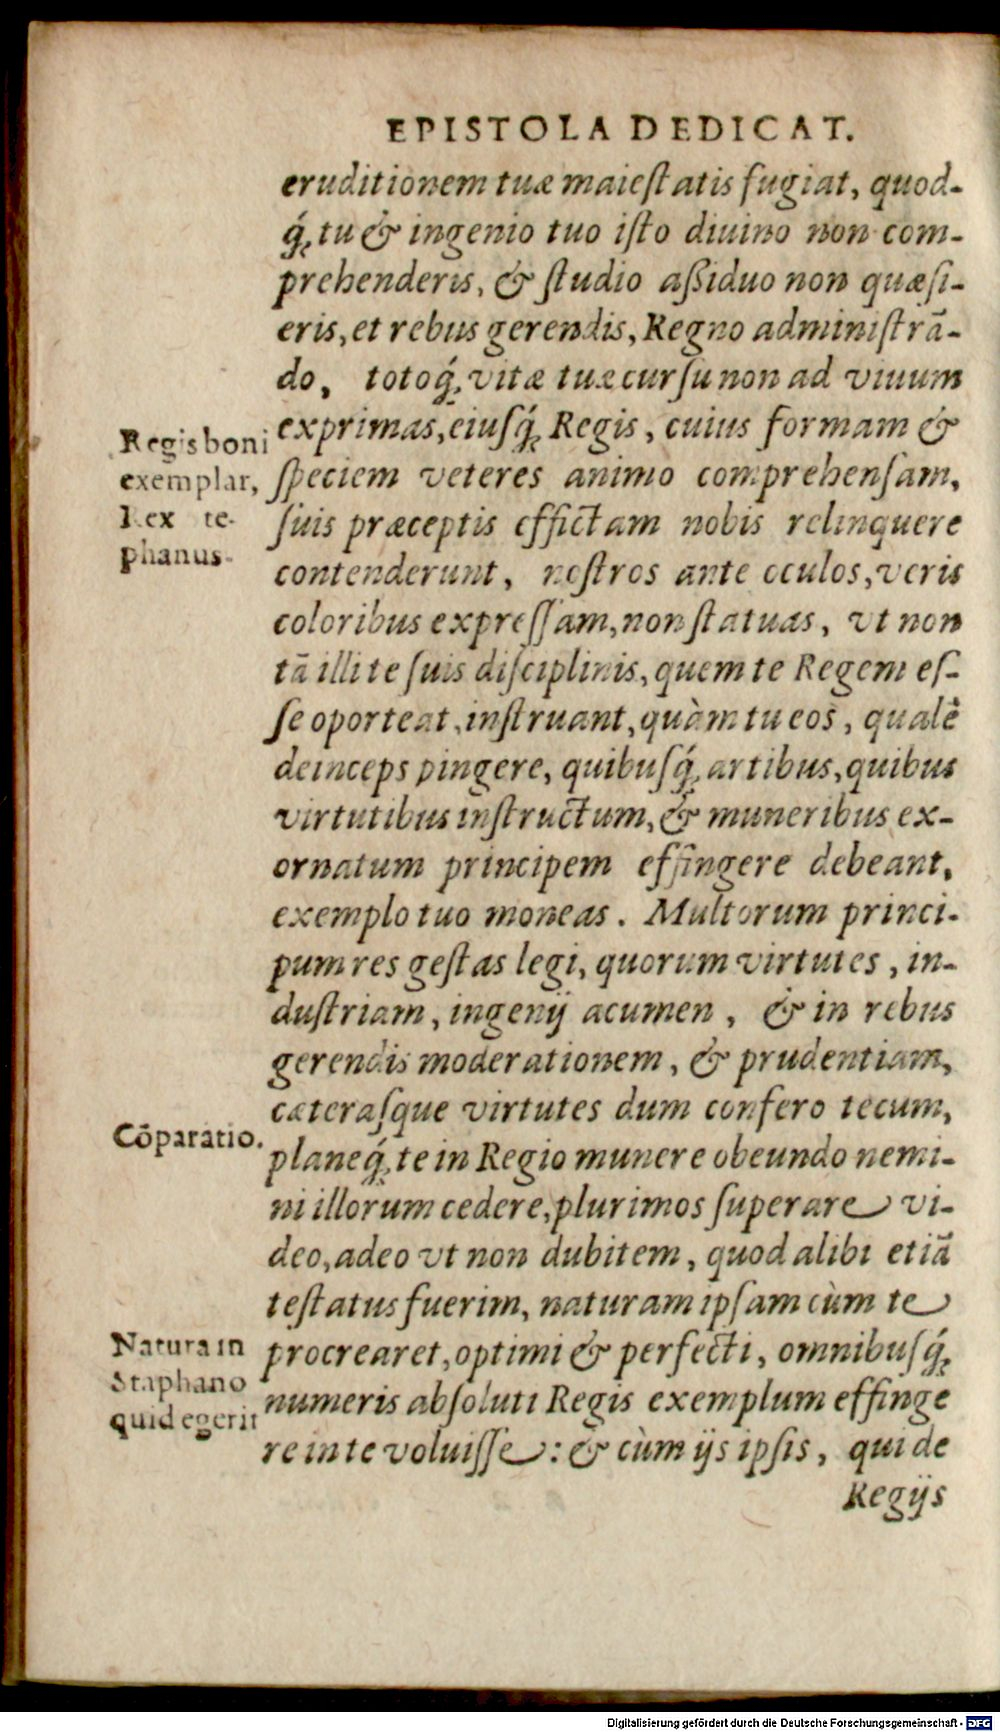 EPISTOLA DEDICAT.
eruditionem tuæ maieſtatis fugiat, quod-
q́; tu & ingenio tuo iſto diuino non com-
prehenderis, & ſtudio aßiduo non quæſi-
eris, et rebus gerendis, Regno adminiſtrā-
do, totoq́; vitæ tuæ curſu non ad viuum
exprimas, eiuſq́; Regis, cuius formam &
ſpeciem veteres animo comprehenſam,
ſuis præceptis effictam nobis relinquere
contenderunt, noſtros ante oculos, veris
coloribus expreſſam, non ſtatuas, vt non
tā illi te ſuis diſciplinis, quem te Regem eſ-
ſe oporteat, inſtruant, quàm tu eos, qualē
deinceps pingere, quibuſq́; artibus, quibus
virtutibus inſtructum, & muneribus ex-
ornatum principem effingere debeant,
exemplo tuo moneas. Multorum princi-
pum res geſtas legi, quorum virtutes, in-
duſtriam, ingenij acumen, & in rebus
gerendis moderationem, & prudentiam,
cæteraſque virtutes dum confero tecum,
planeq́; te in Regio munere obeundo nemi-
ni illorum cedere, plurimos ſuperare vi-
deo, adeo vt non dubitem, quod alibi etiā
teſtatus fuerim, naturam ipſam cùm te
procrearet, optimi & perfecti, omnibuſq́;
numeris abſoluti Regis exemplum effinge
re in te voluiſſe: & cùm ijs ipſis, qui de
Regijs
Regis boni
exemplar,
Rex te-
phanus.
Cōparatio.
Natura in
Staphano
quid egerit
Digitalisierung gefördert durch die Deutsche Forschungsgemeinschaft - DFG